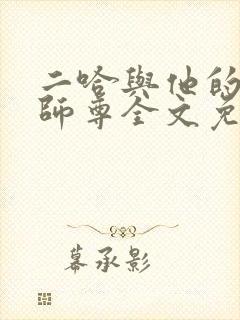 二哈與他的
師尊全文免
幕承影